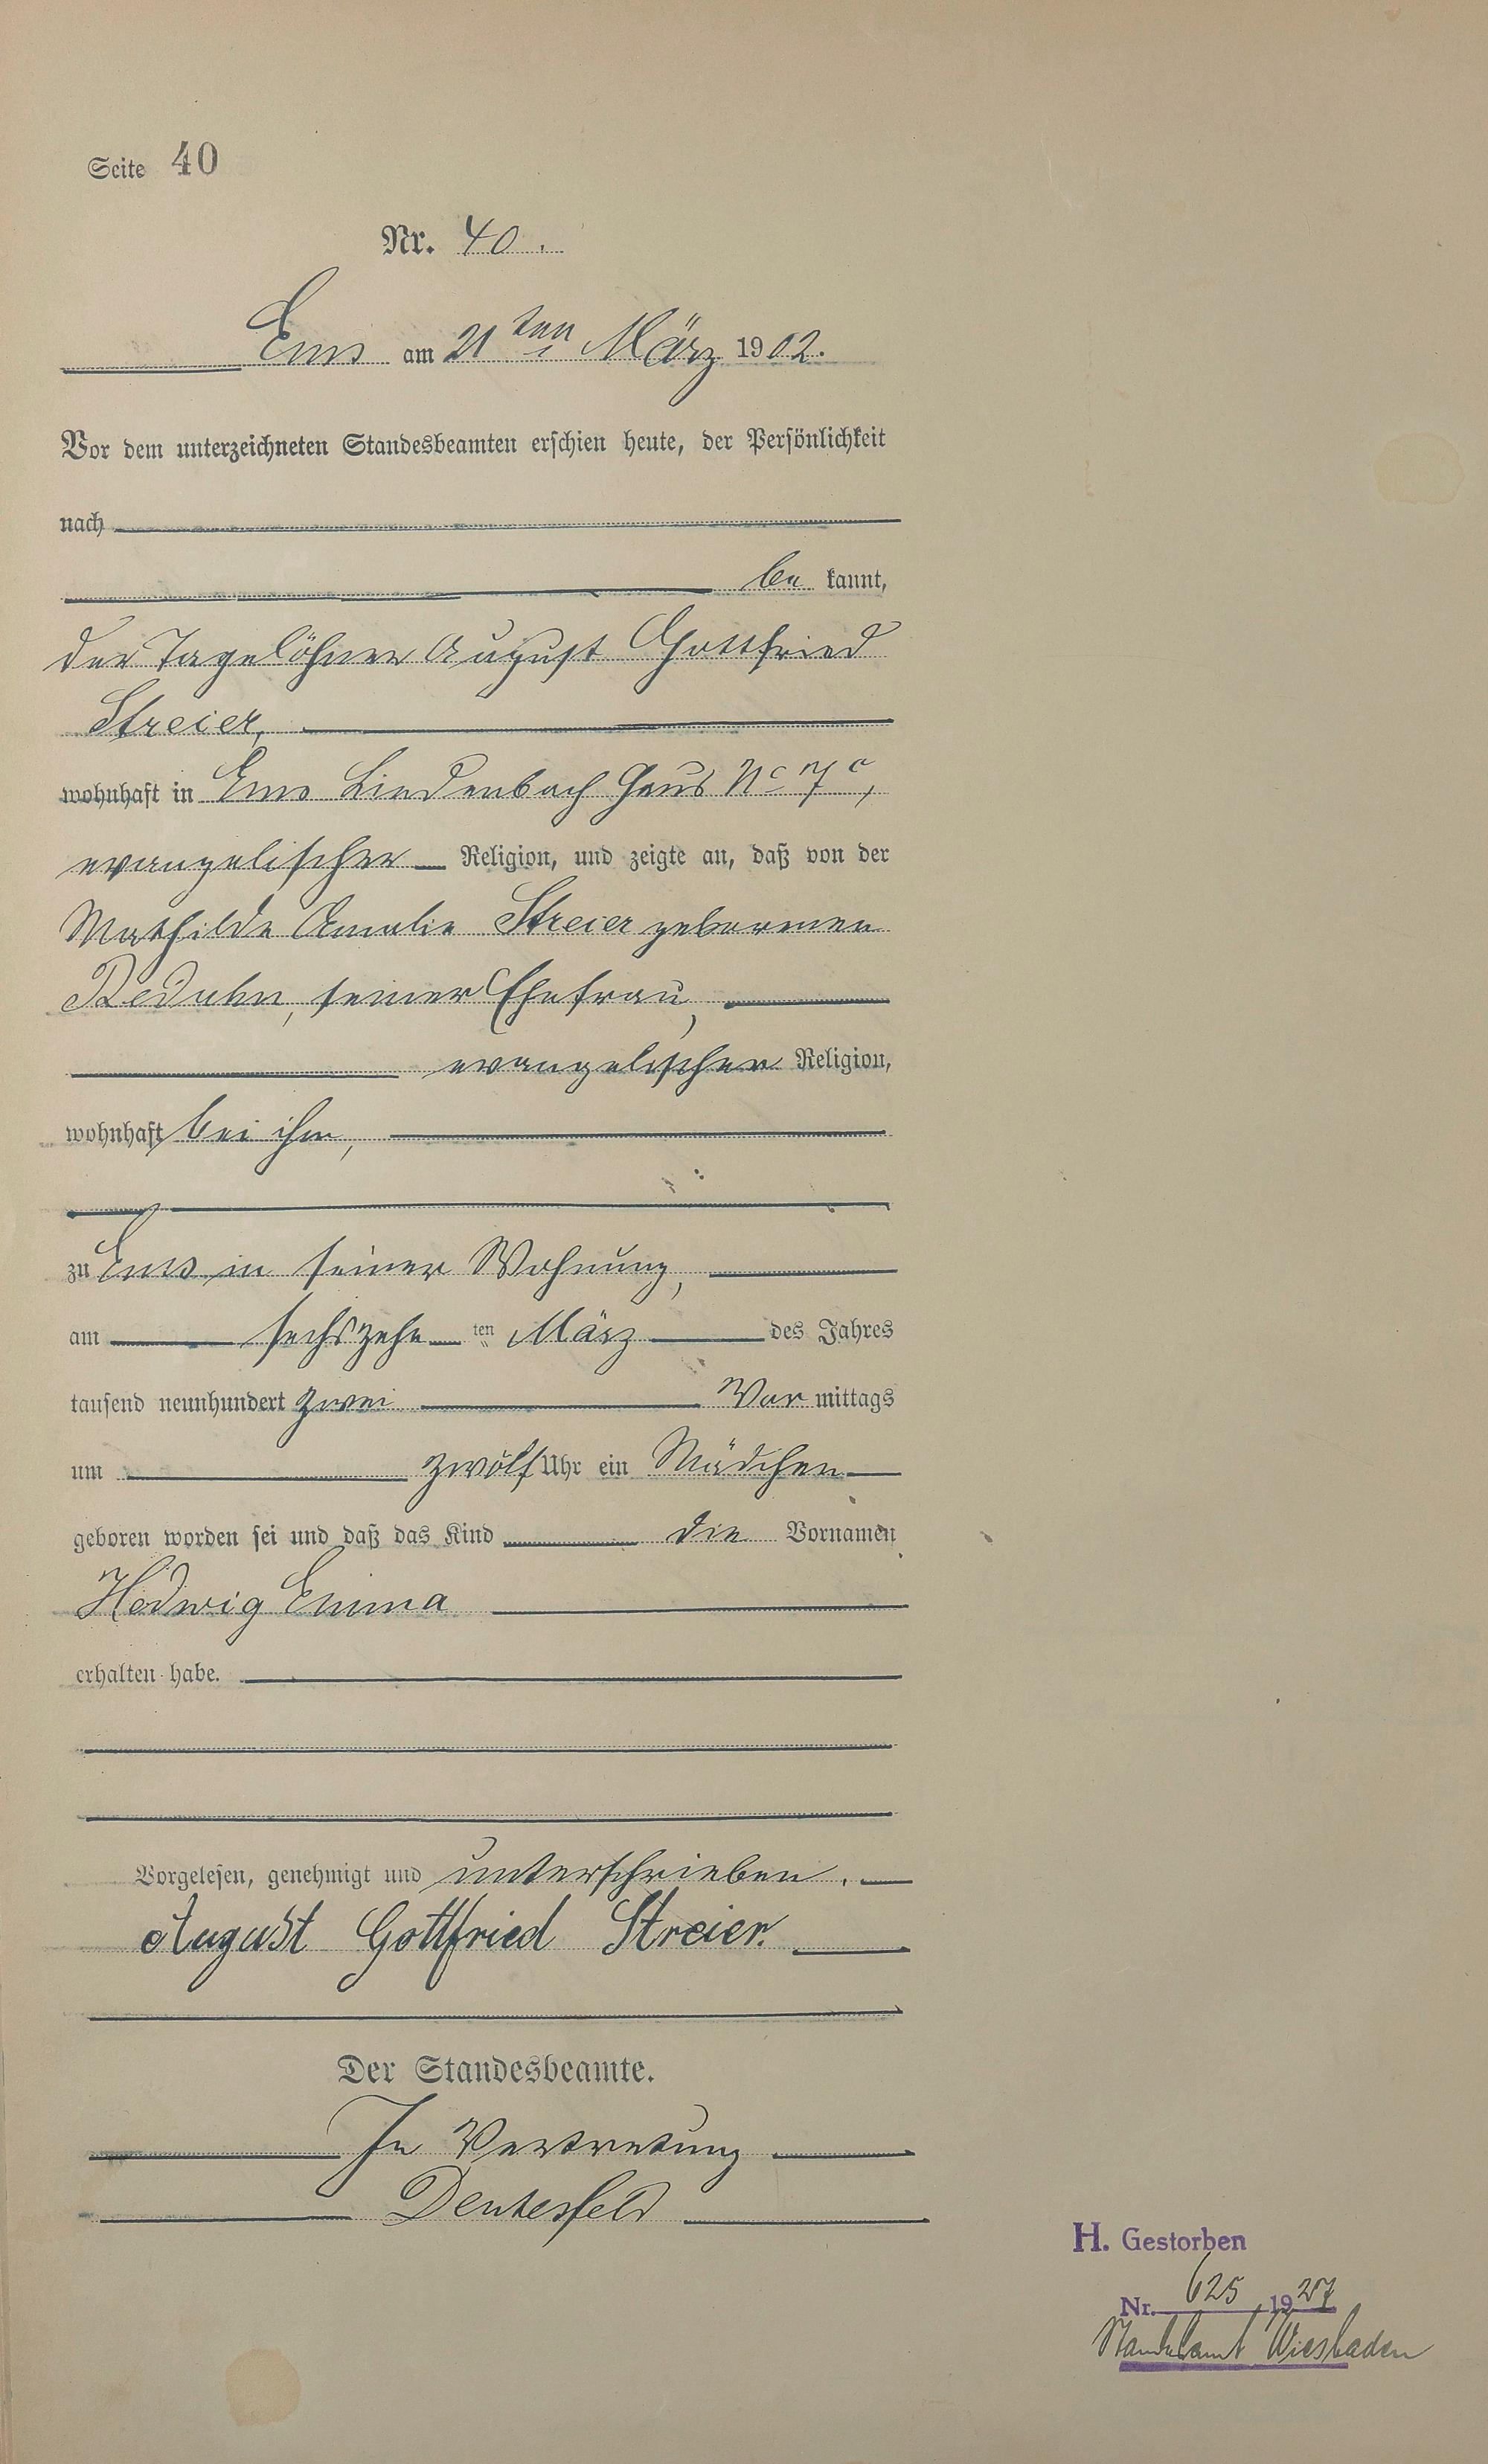 Seite 40
Nr. 40.
Ems am 21ten März 1902.
Vor dem unterzeichneten Standesbeamten erschien heute, der Persönlichkeit
nach
be kannt,
der Tagelöhner August Gottfried
Streier,
wohnhaft in Ems Lindenbach Haus No 7a,
evangelischer Religion, und zeigte an, daß von der
Mathilde Amalie Streier geborenen
Reduhn, seiner Ehefrau,
evangelischer Religion,
wohnhaft bei ihm,
zu Ems in seiner Wohnung,
am sechszehn ten März des Jahres
tausend neunhundert zwei Vor mittags
um zwölf Uhr ein Mädchen
geboren worden sei und daß das Kind die Vornamen
Hedwig Emma
erhalten habe.
Vorgelesen, genehmigt und unterschrieben.
August Gottfried Streier.
Der Standesbeamte.
In Vertretung
H. Gestorben
Nr. 625 1927
Standesamt Wiesbaden